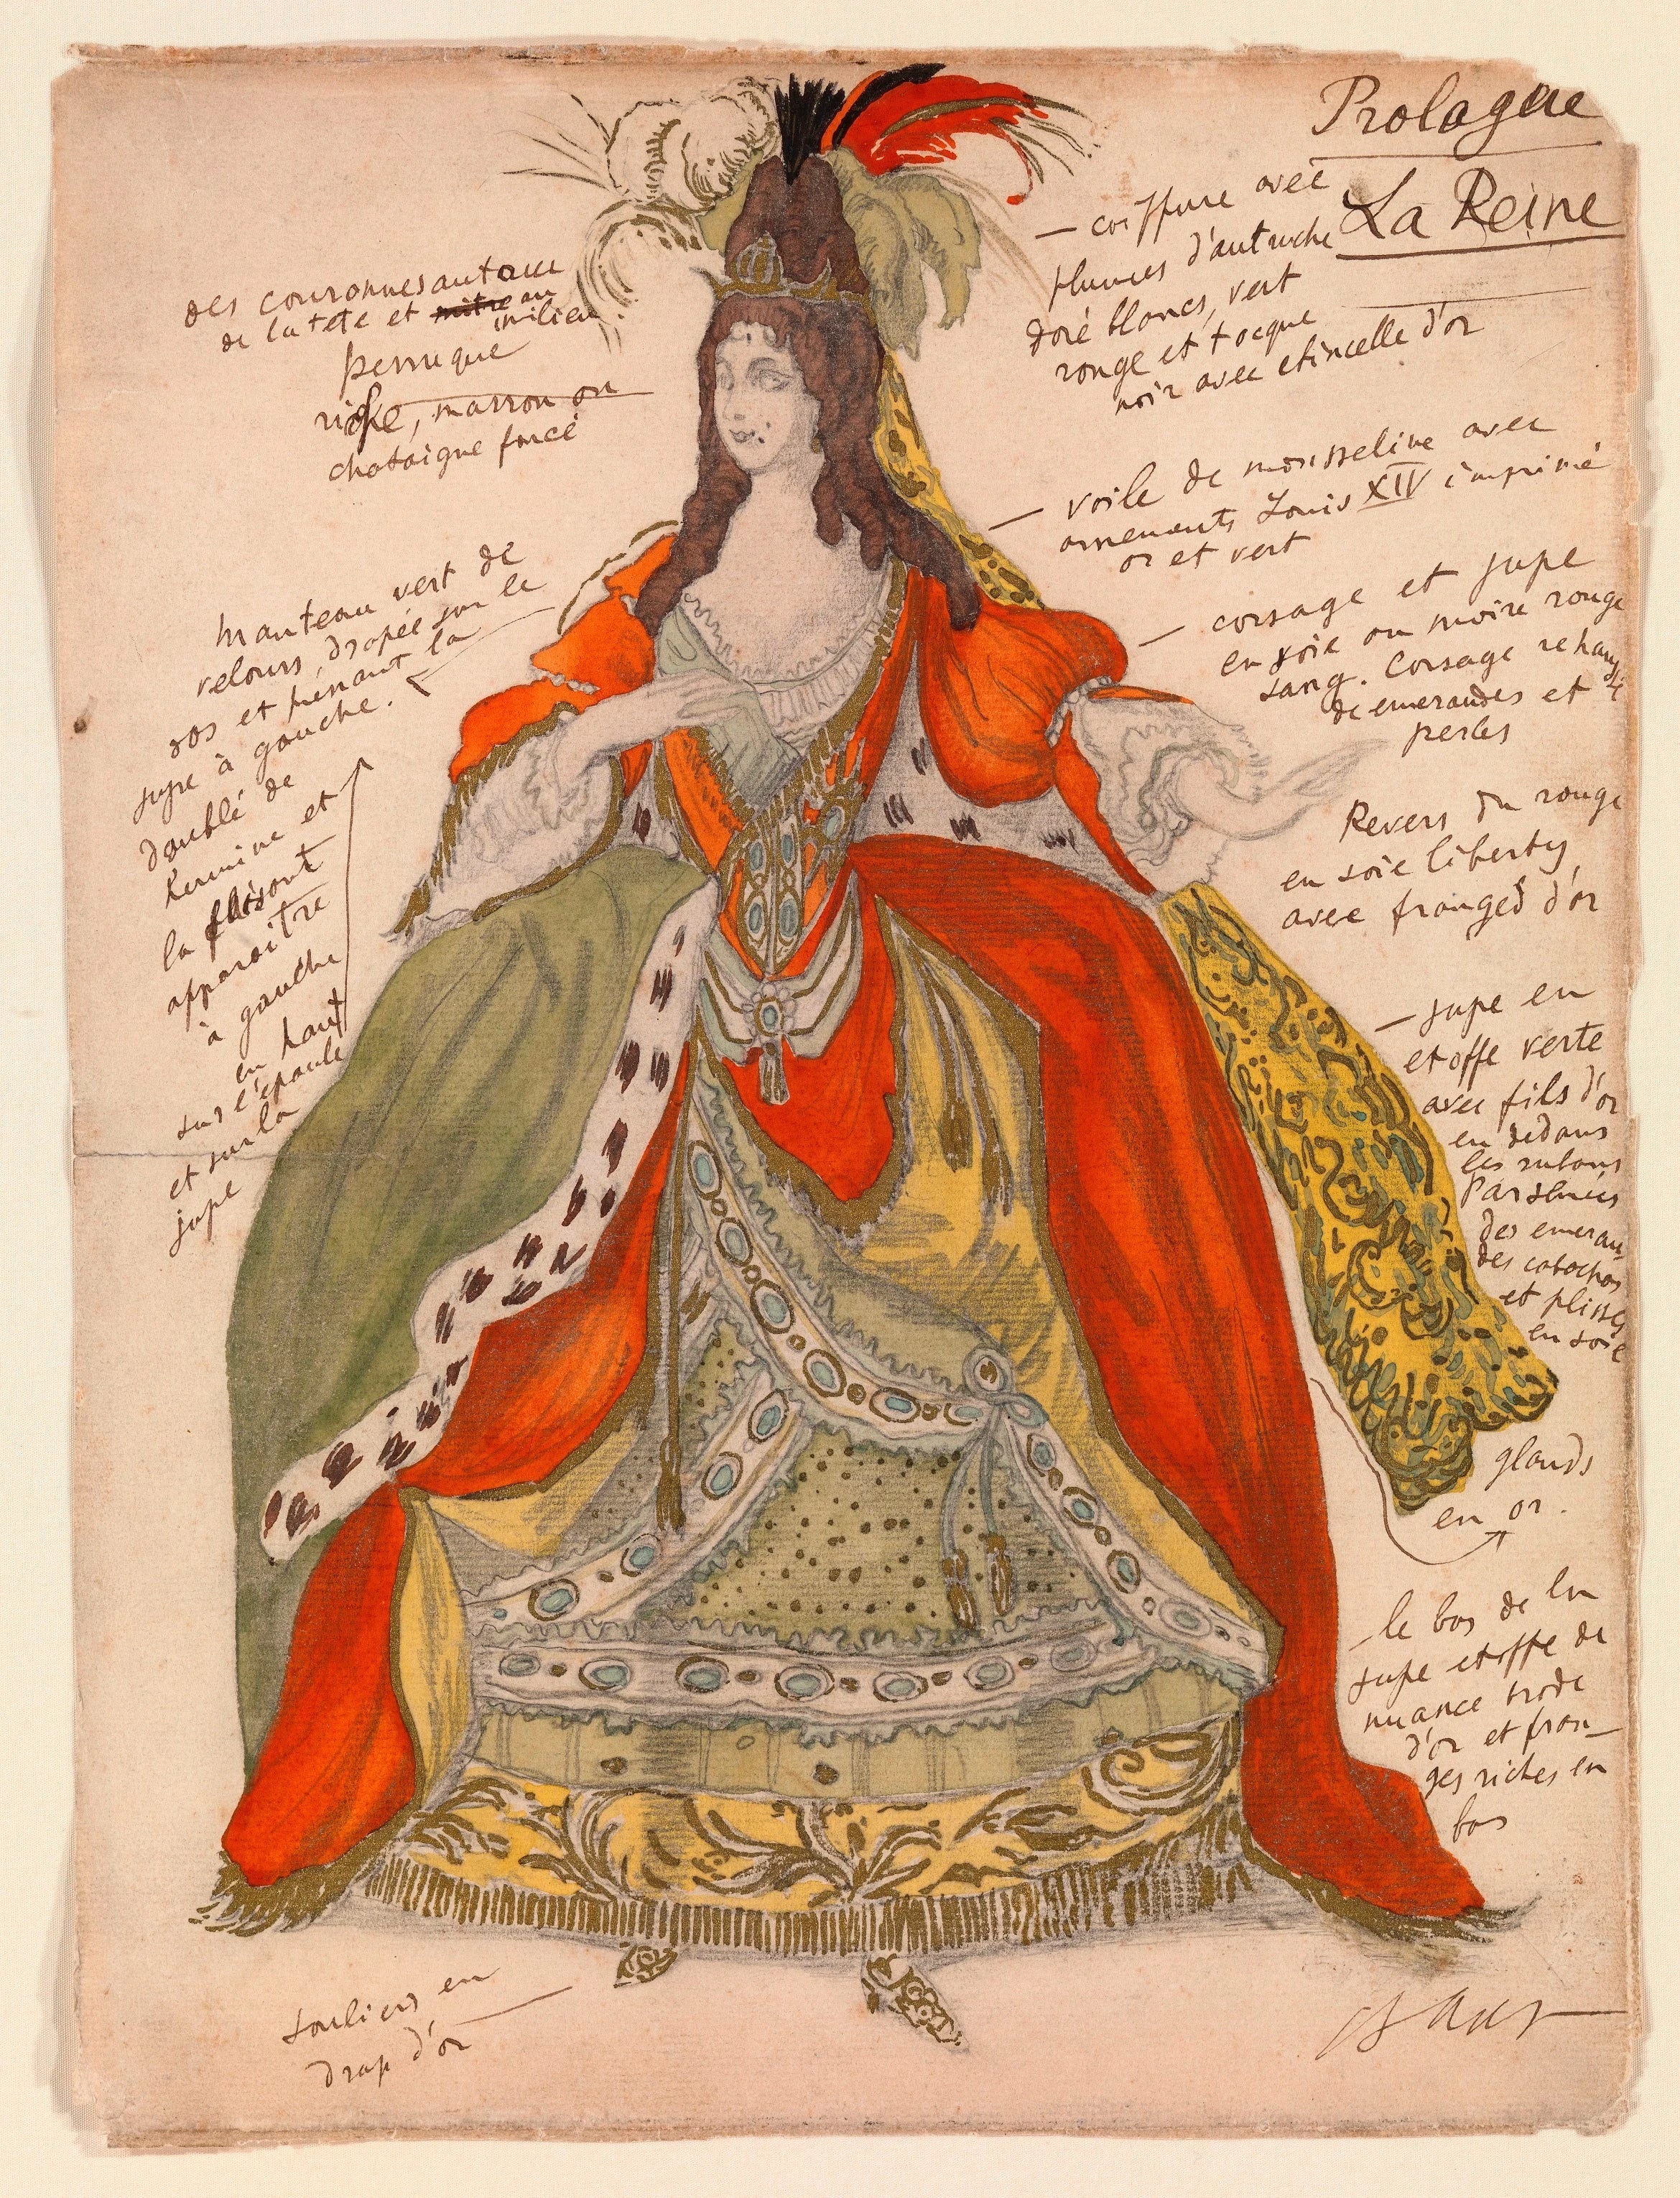 Prologue
La Reine
— coiffure avec
plumes d'autruche
doré blancs, vert
rouge et tocque
noir avec etincelle d'or
— voile de mousseline avec
ornements Louis XIV imprimé
or et vert
— corsage et jupe
en soie ou moire rouge
sang. Corsage rehaussé
de emeraudes et
perles
Revers du rouge
en soie liberty
avec franges d'or
— jupe en
etoffe verte
avec fils d'or
en dedans
les rubans
des emerau-
des cabochos
et plissés
en soie
glands
en or.
— le bas de la
jupe etoffe de
nuance brode
d'or et fran-
ges riches en
bas
des couronnes autour
de la tete et mitre au
milieu
perruque
marron ou
chataigne foncé
Manteau vert de
velours, drapée sur le
dos et prenant la
jupe à gauche.
doublé de
hermine et
la faisant
apparaitre
à gauche
en haut
sur l'epaule
et sur la
jupe
souliers en
drap d'or
Bakst